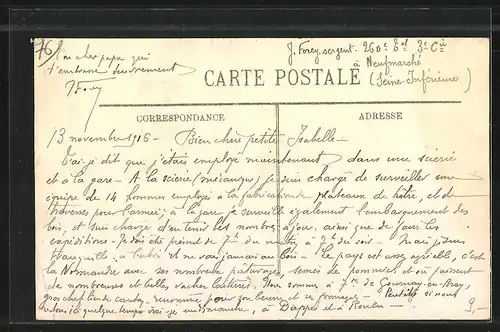 76
Ton cher papa qui
t'embrasse tendrement
J Forey
J. Forey, sergent. 260e Et 3e Cie
à
Neufmarché
(Seine-Inférieure)
CARTE POSTALE
CORRESPONDANCE
ADRESSE
13 novembre 1916 - Bien chère petite Isabelle -
T'ai-je dit que j'étais employé maintenant dans une scierie
et à la gare - À la scierie (mécanique) je suis chargé de surveiller une
équipe de 14 hommes employés à la fabrication de plateaux de hêtre, et de
traverses pour l'armée; à la gare je surveille également l'embarquement des
bois, et suis chargé d'en tenir le nombre à jour, ainsi que de faire les
expéditions - Je dois être présent de 7h du matin à 5h du soir - Mais j'y suis
tranquille, à l'abri et ne vais jamais au bois - Le pays est assez agréable, c'est
la Normandie avec ses nombreux pâturages, semés de pommiers et où paissent
de nombreuses et belles vaches laitières. Nous sommes à 7km de Gournay-en-Bray,
gros chef-lieu de canton, renommé pour son beurre et ses fromages - Peut-être si nous
restons ici quelque temps irai-je me promener, à Dieppe et à Rouen -